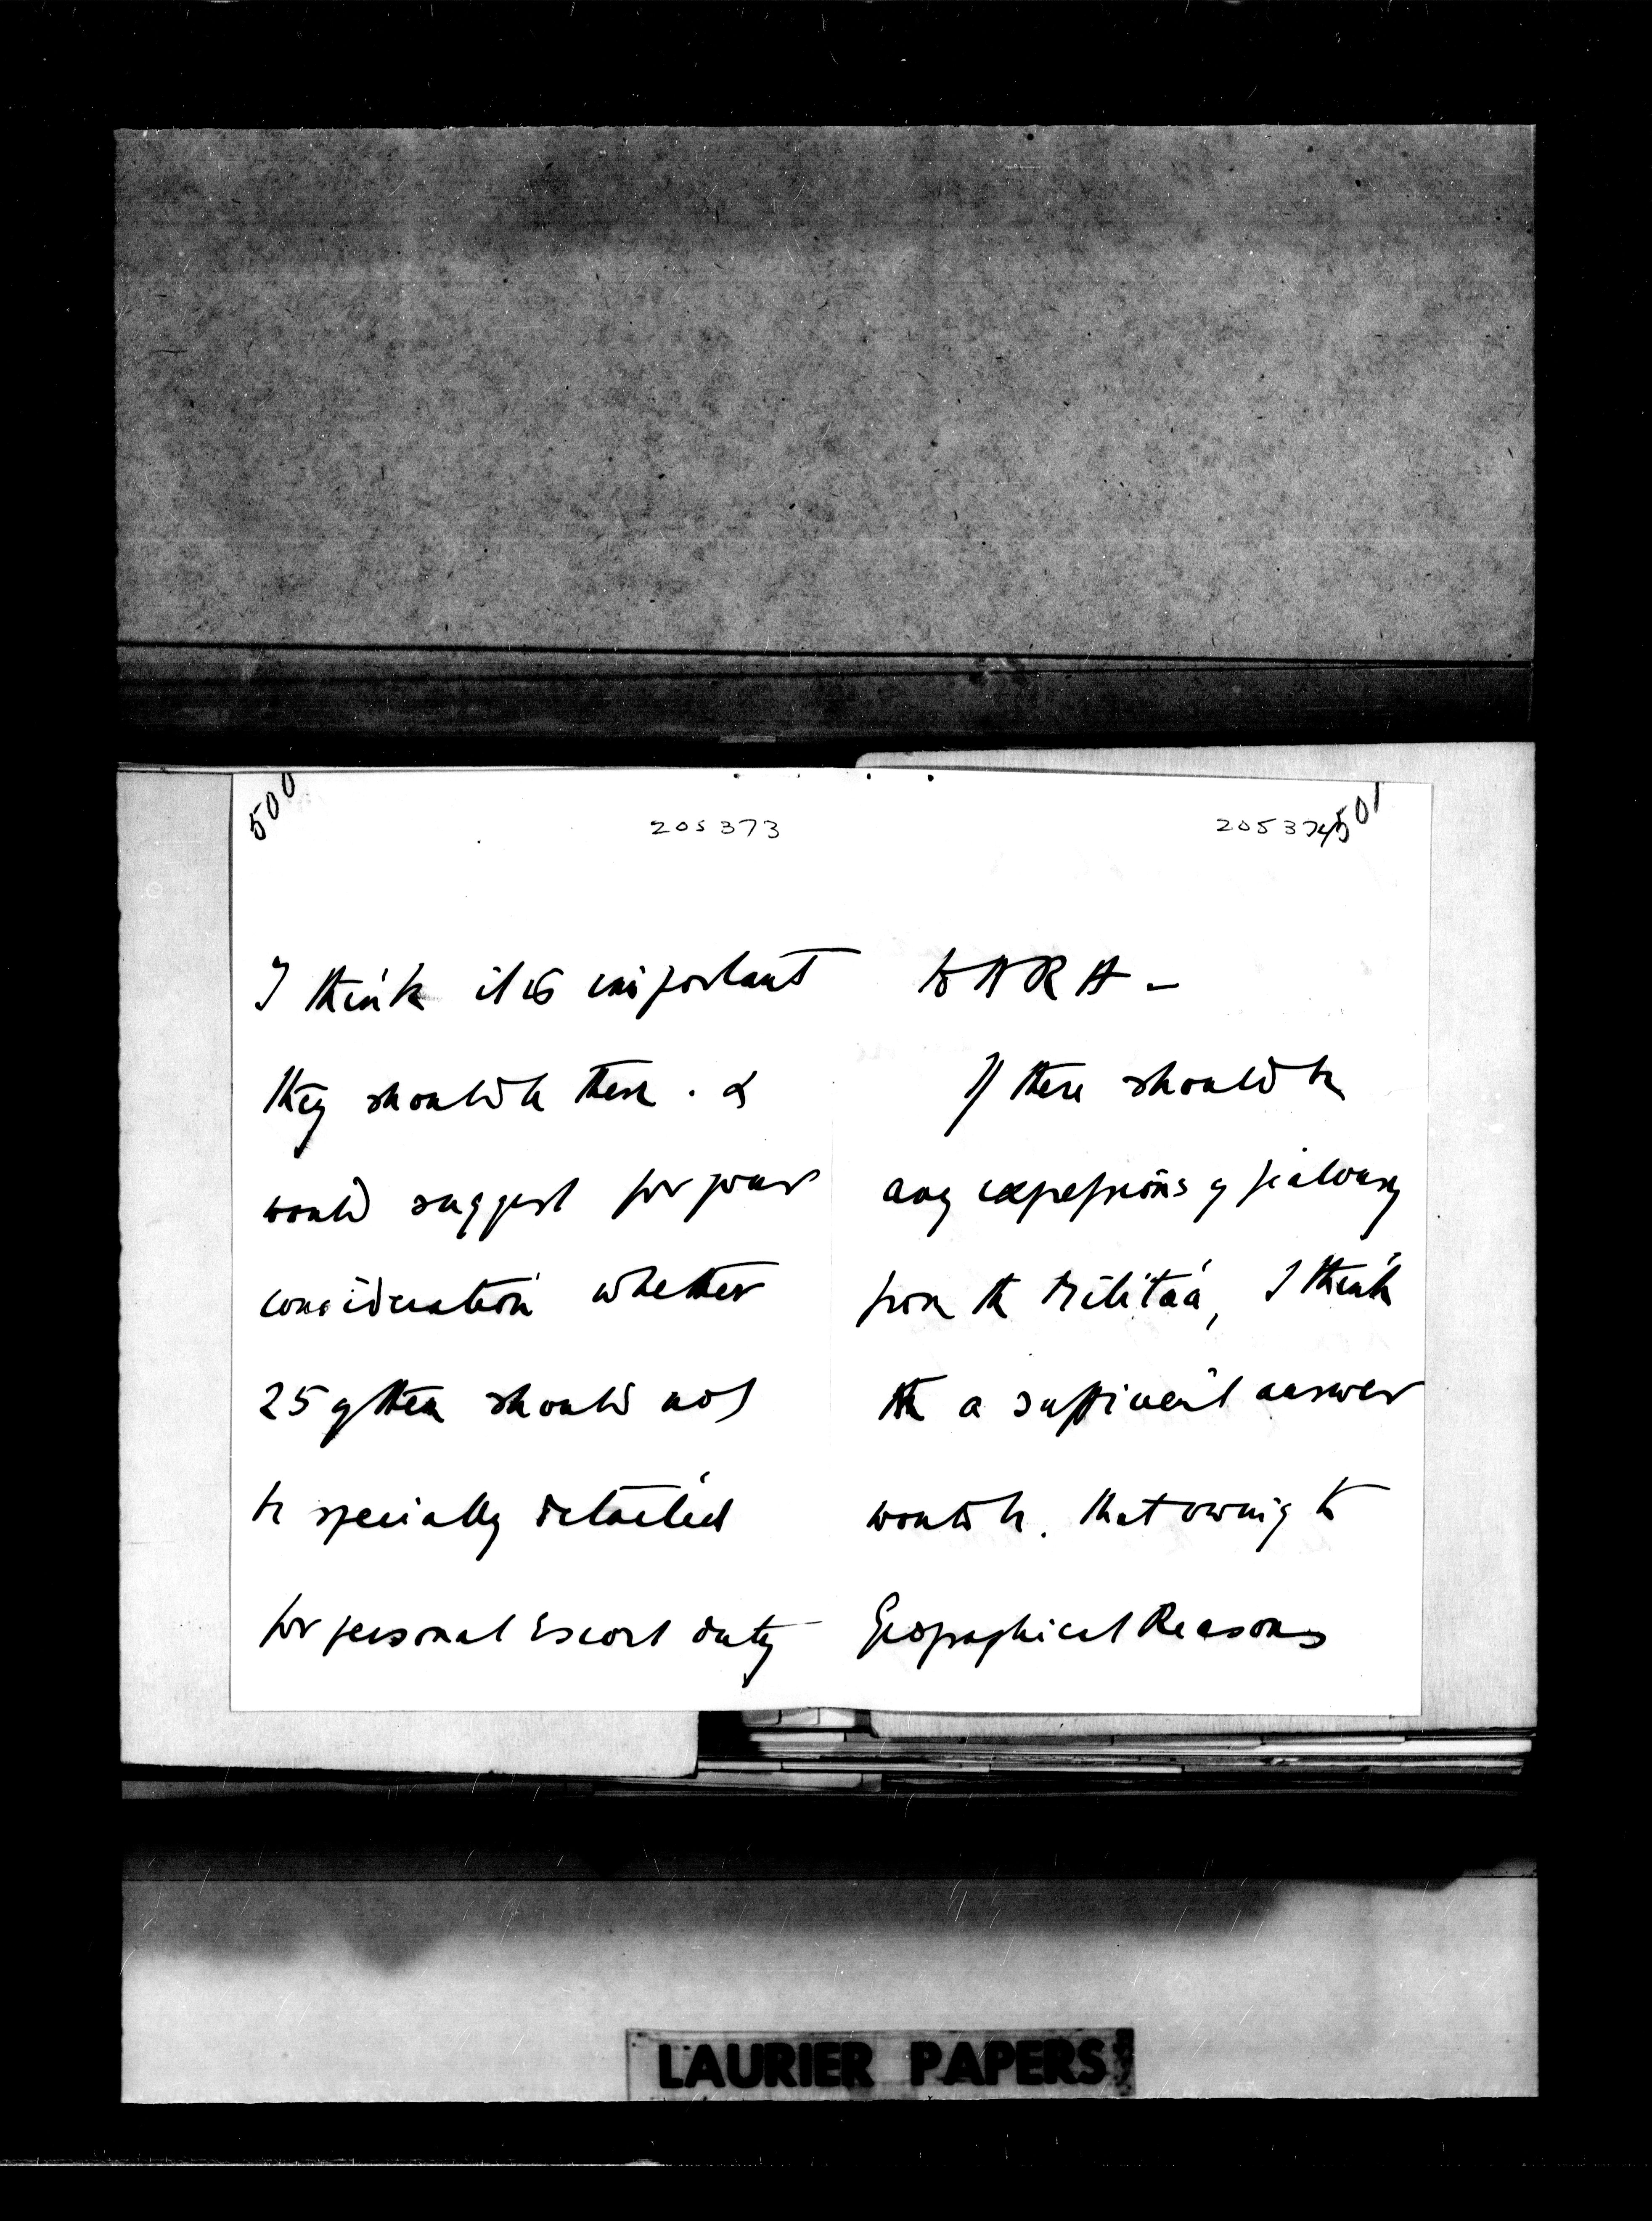 500
205373
I think it is important
they should be there. &
would suggest for your
consideration whether
25 of them should not
be specially detailed
for personal Escort duty
205374
501
to H R H -
If there should be
any expressions of jealousy
from the Militia, I think
the a sufficient answer
would be, that owing to
Geographical Reasons
LAURIER PAPERS